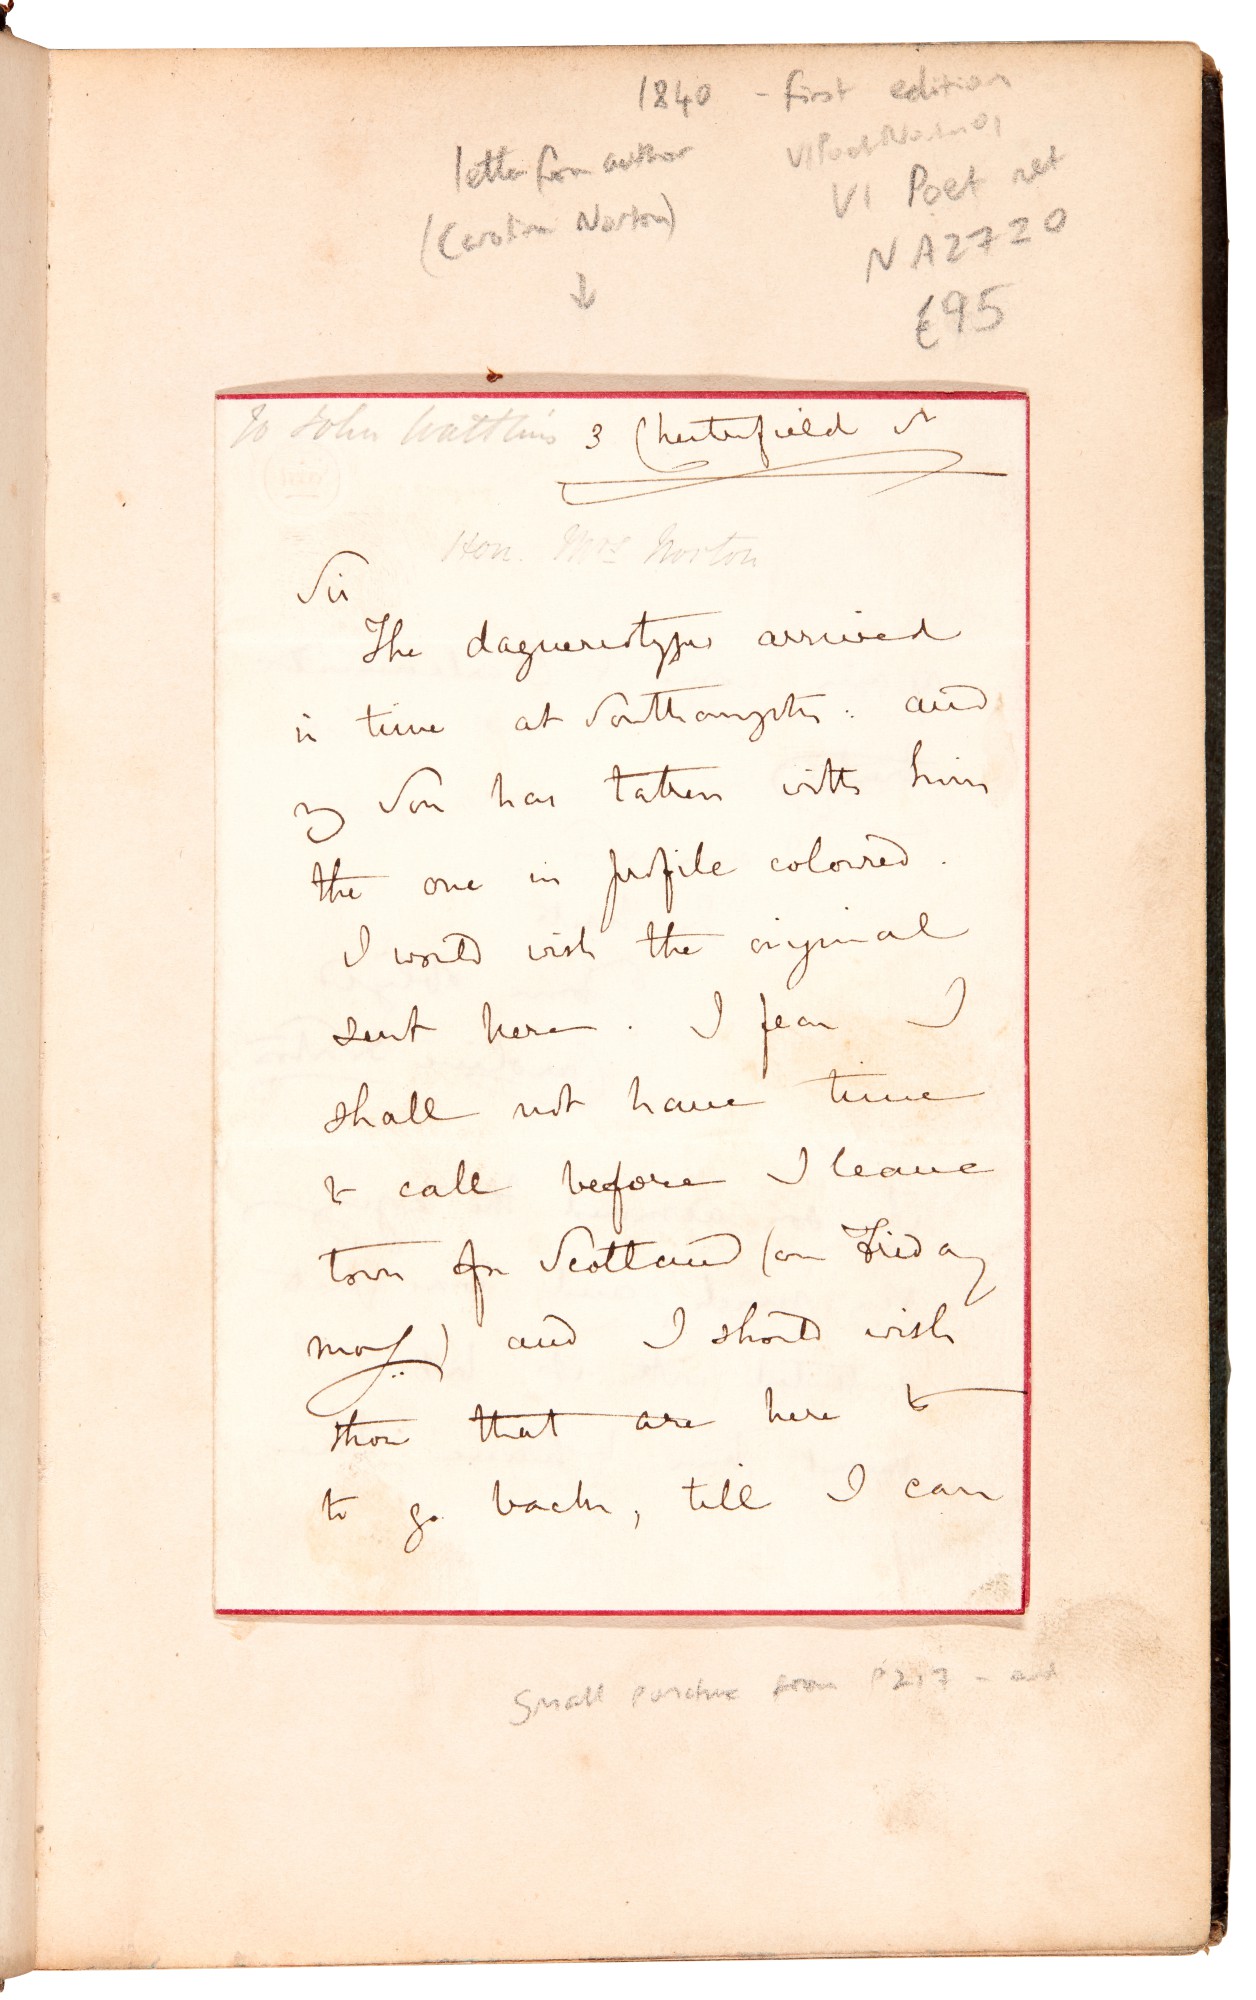 1840 - first edition
letter from author
VI Poet net
(Caroline Norton)
NA2720
↓
£95
To John Watkins 3 Chesterfield St
Hon. Mrs Norton
Sir
The daguereotypes arrived
in time at Southampton: and
my Son has taken with him
the one in profile coloured.
I would wish the original
sent here. I fear I
shall not have time
to call before I leave
town for Scotland (on Friday
mog) and I should wish
those that are here to
to go back, till I can
Small puncture from P217 - end